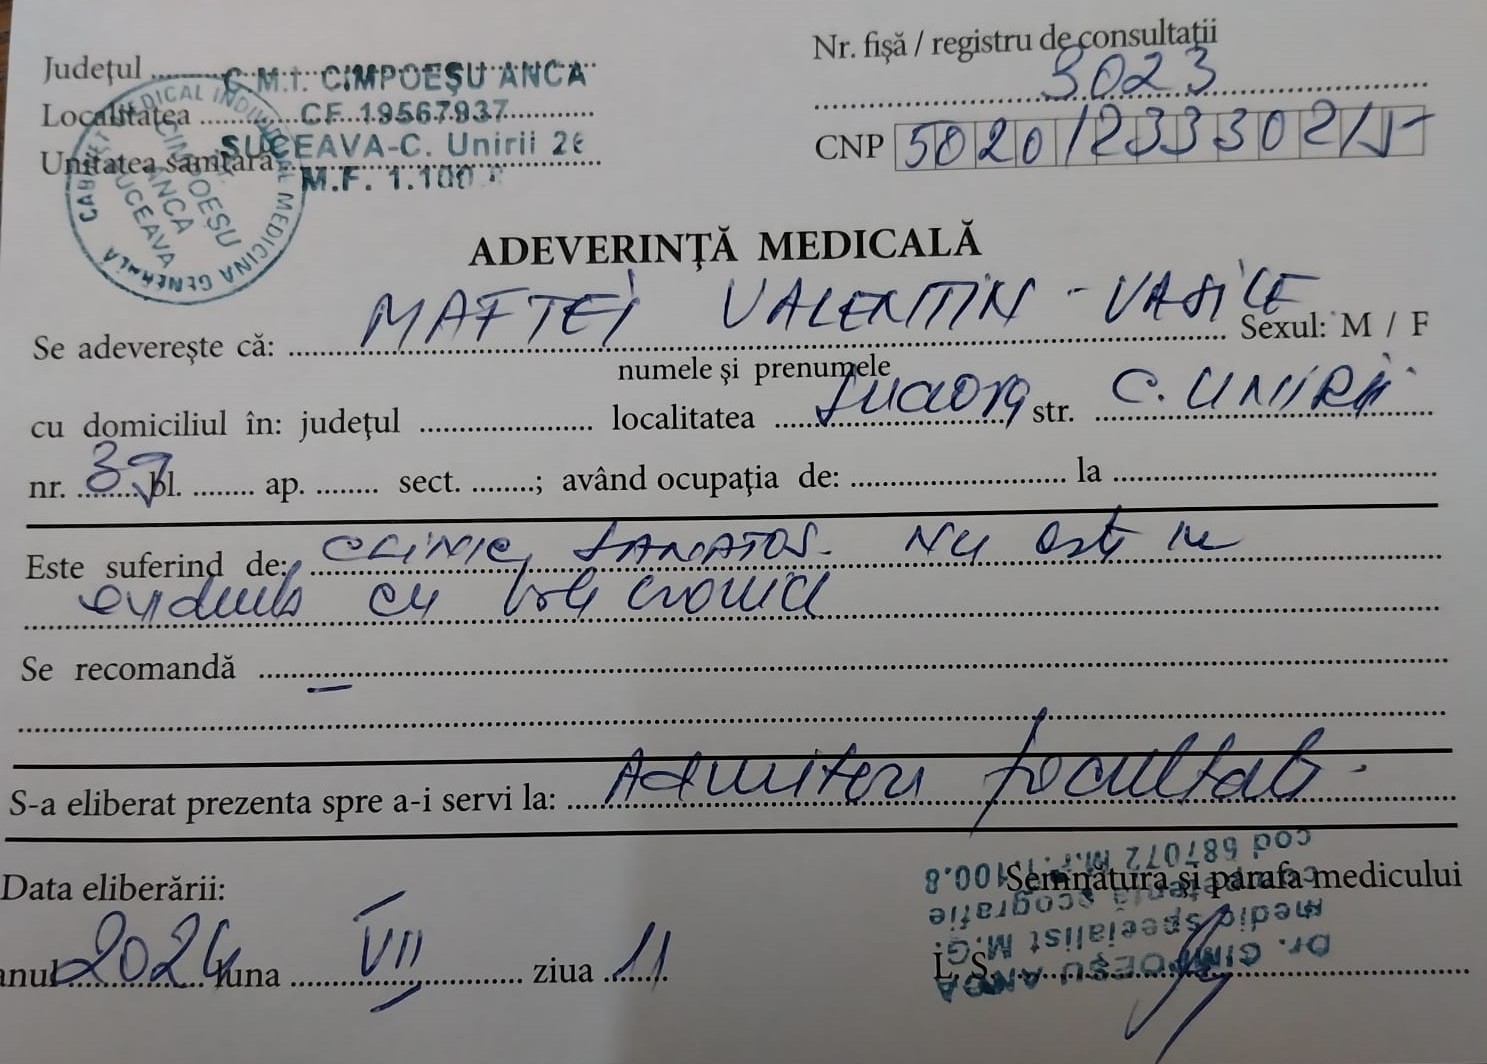 Județul ........ C.M.I. CIMPOEȘU ANCA
Localitatea ........ CF 19567937
Unitatea sanitară SUCEAVA-C. Unirii 26
M.F. 1.100
CABINET MEDICAL INDIVIDUAL MEDICINA GENERALA
CIMPOEȘU
ANCA
SUCEAVA
Nr. fișă / registru de consultații
3023
CNP 5020123330215
ADEVERINȚĂ MEDICALĂ
Se adeverește că: MAFTEI VALENTIN - VASILE Sexul: M / F
numele și prenumele
cu domiciliul în: județul ........ localitatea Suceava str. C. UNIRII
nr. 37 bl. ........ ap. ........ sect. ........; având ocupația de: ........ la ........
Este suferind de: CLINIC SANATOS. Nu este in
evidenta cu boli cronice
Se recomandă —
S-a eliberat prezenta spre a-i servi la: Admitere facultate.
Data eliberării:
anul 2024 luna VII ziua 11
Semnătura și parafa medicului
L.S.
Dr. CIMPOEȘU ANCA
medic specialist M.G.
competență ecografie
cod 687072 M.F. 1.100.8